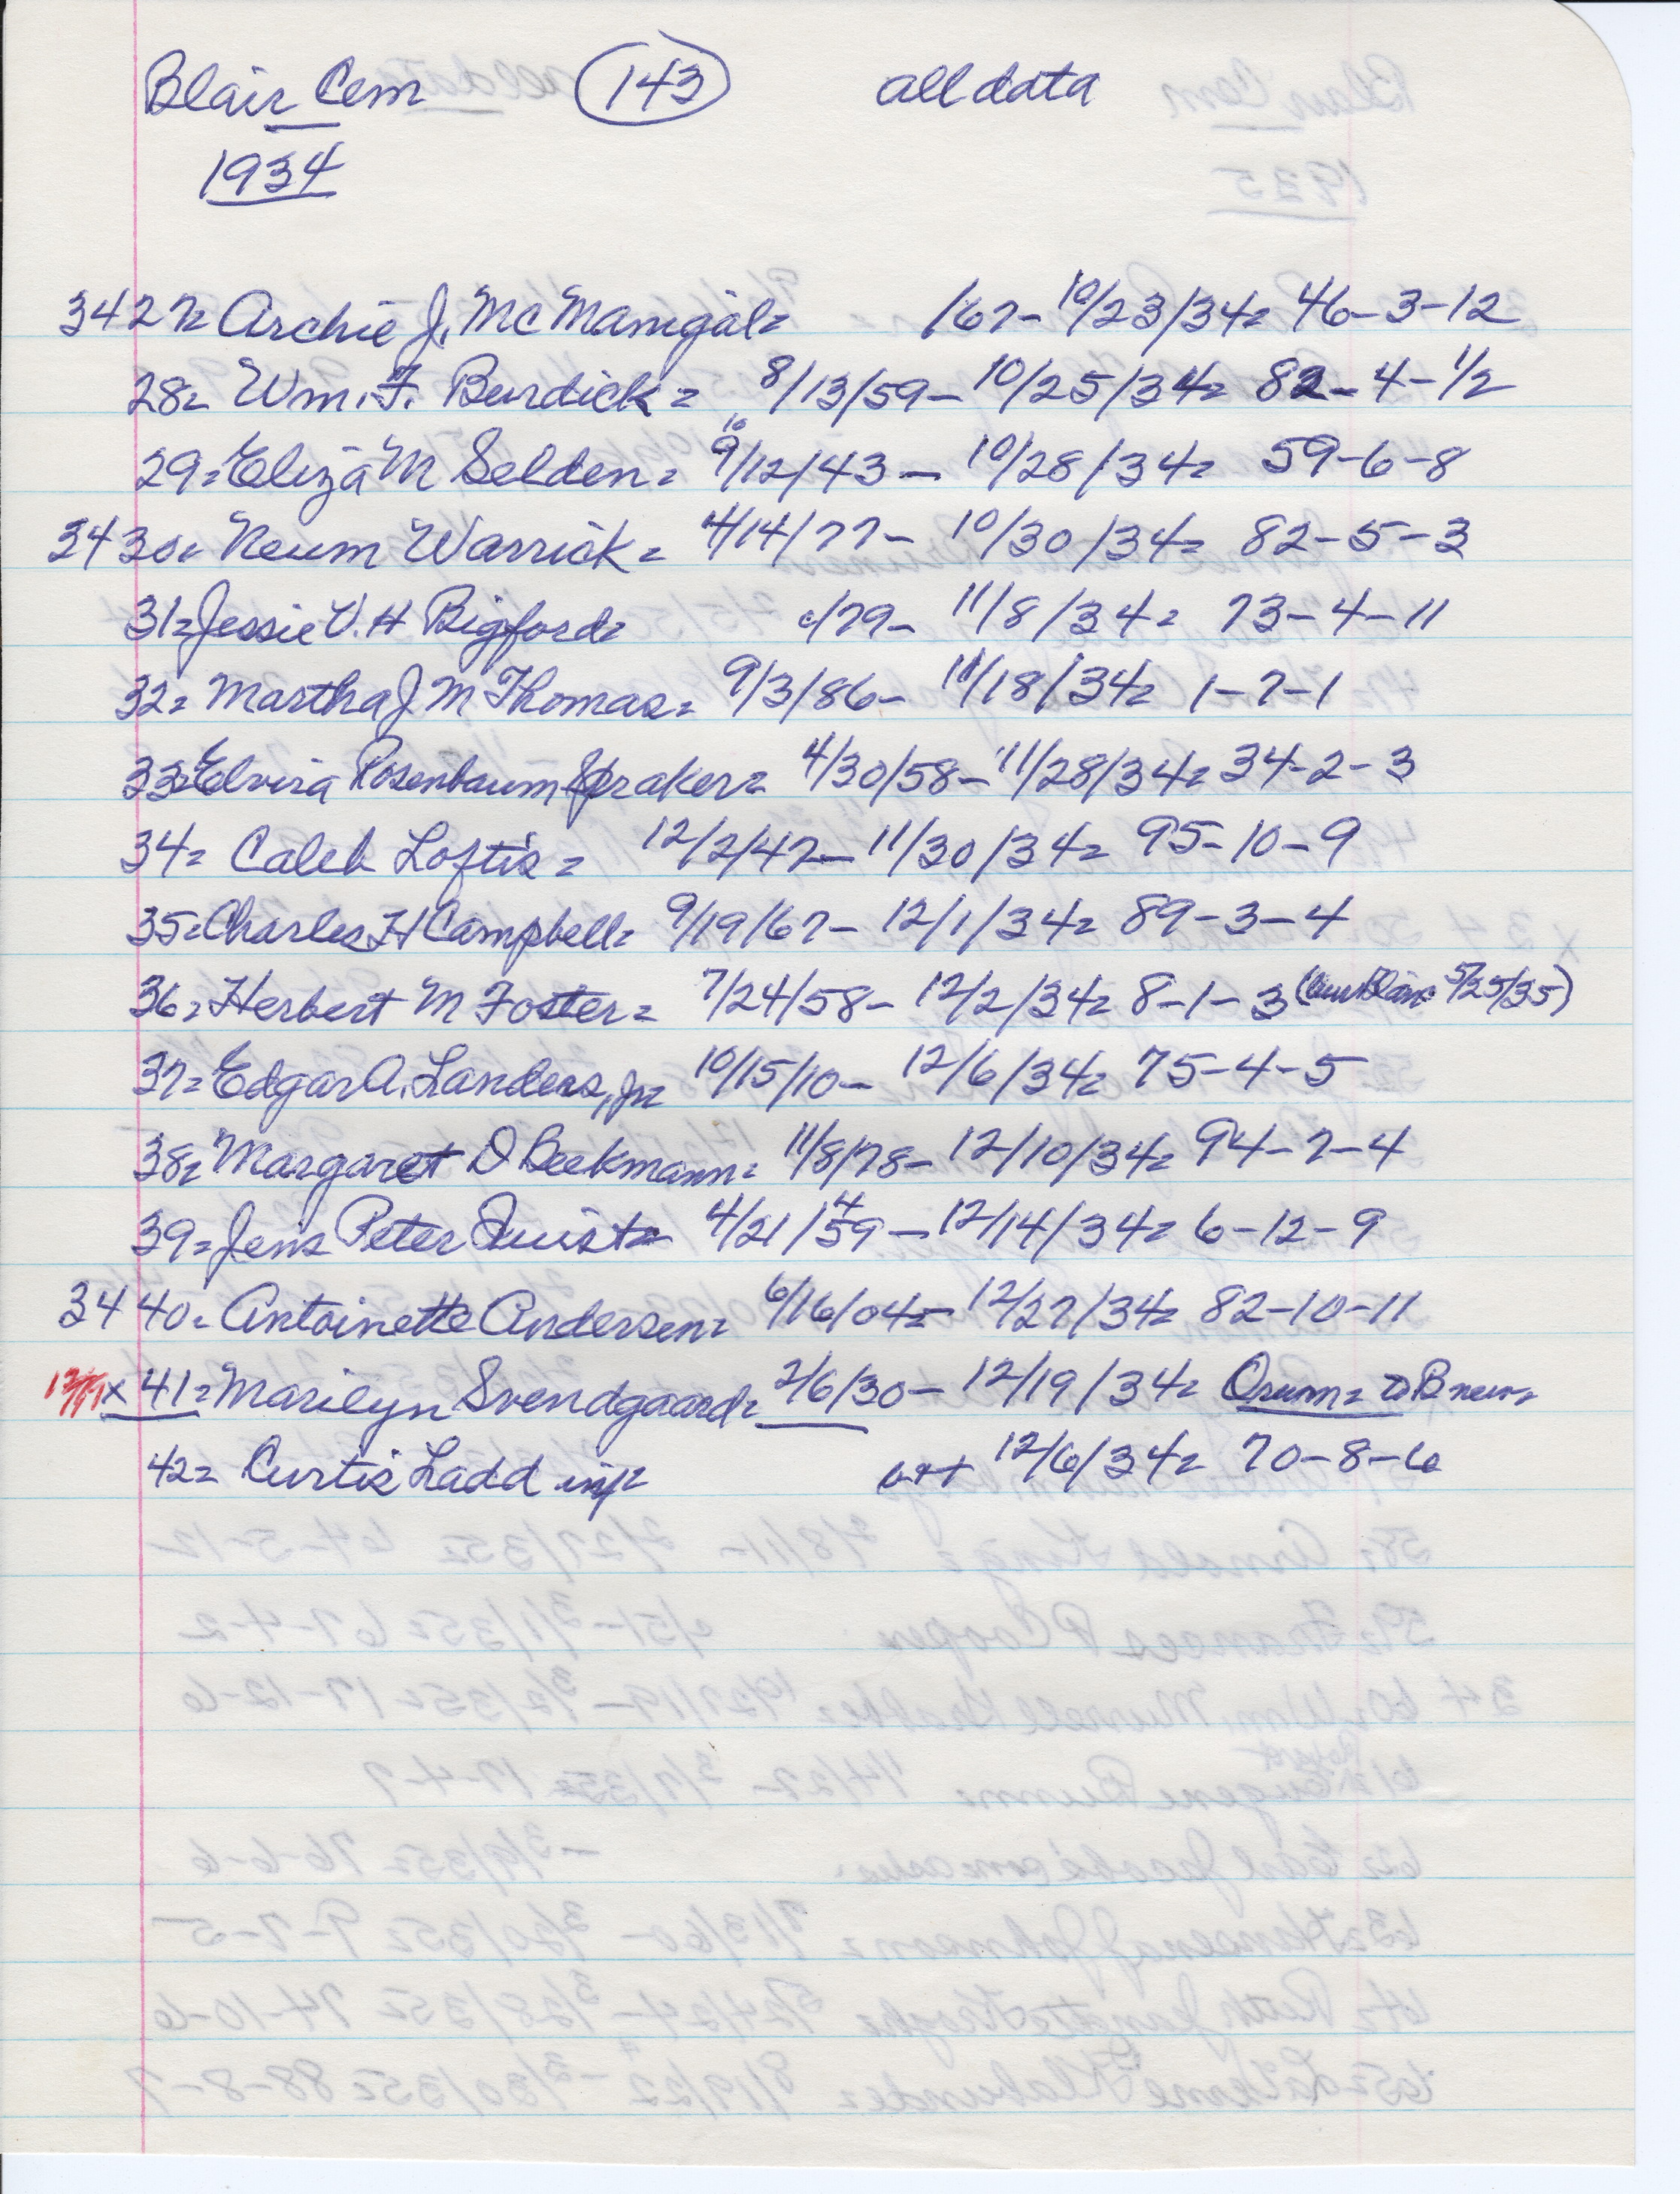 Blair Cem 143 all data
1934
3427= Archie J. McManigal= /67- 10/23/34= 46-3-12
28= Wm. F. Burdick= 8/13/59- 10/25/34= 82-4-1/2
29= Eliza M Selden= 9/12/43- 10/28/34= 59-6-8
10
3430= Neum Warrick= 4/14/77- 10/30/34= 82-5-3
31= Jessie V. H Bigford= c/79- 11/8/34= 73-4-11
32= Martha J M Thomas= 9/3/86- 11/18/34= 1-7-1
33= Elvira Rosenbaum Spraker= 4/30/58- 11/28/34= 34-2-3
34= Caleb Loftis= 12/2/47- 11/30/34= 95-10-9
35= Charles H Campbell= 9/19/67- 12/1/34= 89-3-4
36= Herbert M Foster= 7/24/58- 12/2/34= 8-1-3 ( 5/25/35)
37= Edgar A. Landers, Jr= 10/15/10- 12/6/34= 75-4-5
38= Margaret D Beekmann= 11/8/78- 12/10/34= 94-7-4
39= Jens Peter Quist= 4/21/59- 12/14/34= 6-12-9
4
3440= Antoinette Andersen= 6/16/04= 12/27/34= 82-10-11
x 41= Marilyn Svendgaard= 2/6/30- 12/19/34= Orum= to B new=
42= Curtis Ladd inf= 12/6/34= 70-8-6